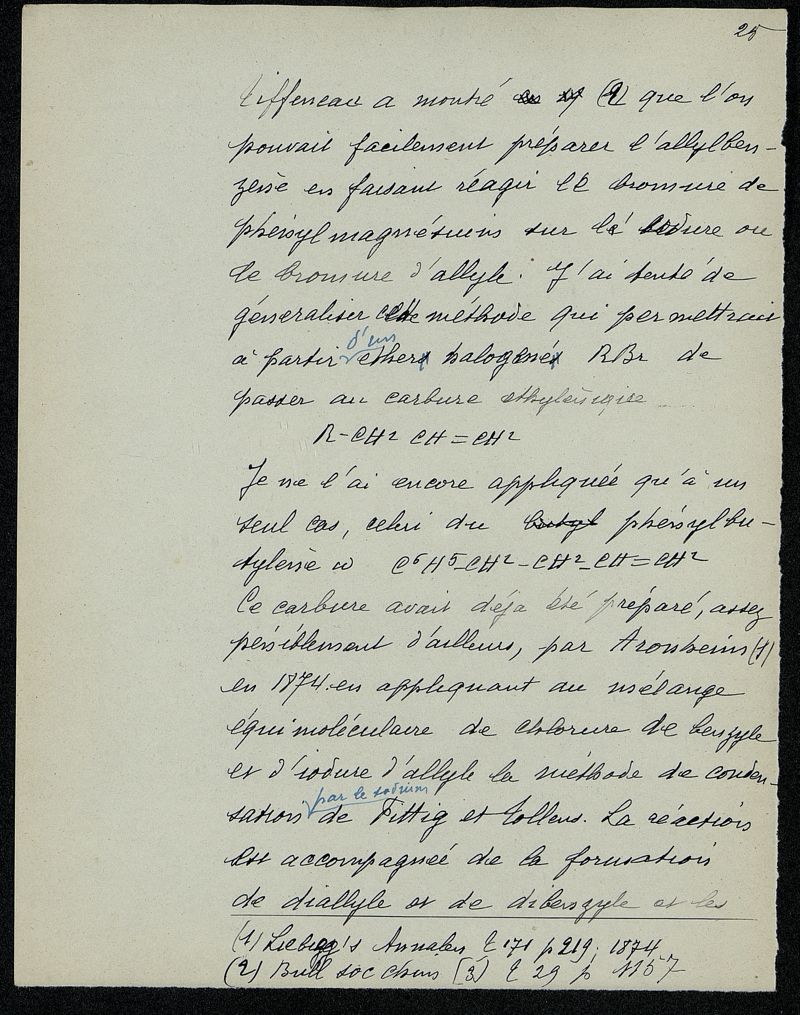 25
Tiffeneau a montré (2) que l'on
pouvait facilement préparer l'allylben-
zène en faisant réagir le bromure de
phénylmagnésium sur le iodure ou
le bromure d'allyle. J'ai tenté de
généraliser cette méthode qui permettrait
d'un
à partir ether halogéné RBr de
passer au carbure ethylénique
R-CH² CH=CH²
Je ne l'ai encore appliquée qu'à un
seul cas, celui du butyl phénylbu-
tylène ω C⁶H⁵-CH²-CH²-CH=CH²
Ce carbure avait déja été préparé, assez
péniblement d'ailleurs, par Aronheim (1)
en 1874. en appliquant au mélange
équimoléculaire de chlorure de benzyle
et d'iodure d'allyle la méthode de conden-
par le sodium
sation de Fittig et Tollens. La réaction
est accompagnée de la formation
de diallyle et de dibenzyle et les
(1) Liebig's Annalen t 171 p 219. 1874
(2) Bull soc chim [3] t 29 p 1157